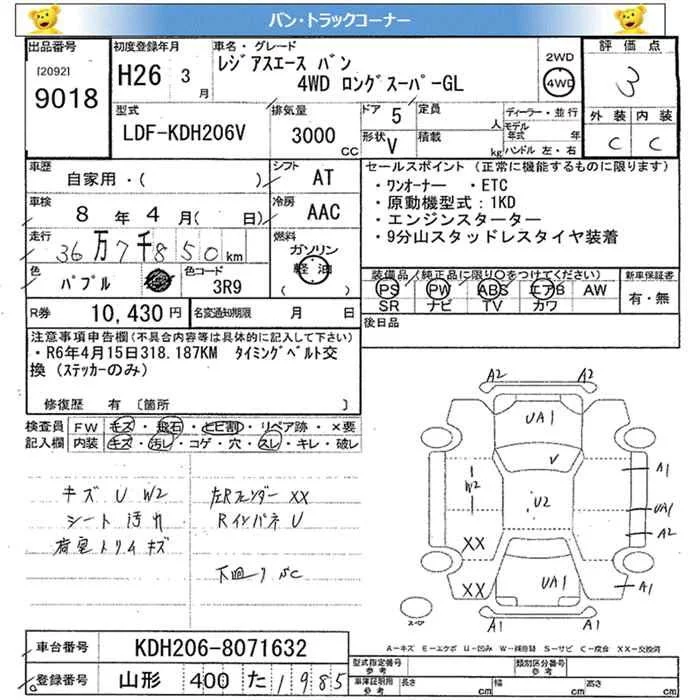 バン・トラックコーナー
出品番号
[2092]
9018
初度登録年月
H26 3月
車名・グレード
レジアスエース バン
4WD ロングスーパーGL
2WD
4WD
評価点
3
外装 内装
C C
型式
LDF-KDH206V
排気量
3000
CC
ドア 5
形状 V
定員 人
積載 kg
ディーラー・並行
モデル年式 年
ハンドル 左・右
車歴
自家用・( )
シフト
AT
車検
8年4月( 日)
冷房
AAC
走行
36万7千850km
燃料
ガソリン
軽油
色
パプル
色コード
3R9
R券 10,430円
名変通知期限 月 日
セールスポイント (正常に機能するものに限ります)
・ワンオーナー ・ETC
・原動機型式:1KD
・エンジンスターター
・9分山スタッドレスタイヤ装着
装備品(純正品に限り○をつけてください)
PS PW ABS エアB AW
SR ナビ TV カワ
新車保証書
有・無
後日品
注意事項申告欄(不具合内容等は具体的に記入して下さい)
・R6年4月15日318.187KM タイミングベルト交
換(ステッカーのみ)
修復歴 有 〔箇所 〕
検査員
記入欄
FW キズ・飛石・ヒビ割・リペア跡・×要
内装 キズ・汚レ・コゲ・穴・スレ・キレ・破レ
キズ U W2
シート 汚れ
荷室トリム キズ
左Rフェンダー XX
Rインパネ U
下廻り SC
A2 A2
UA1
V
W2
U2
A1
UA1
A2
XX
XX
UA1
A1
A1 A1
スペア
A-キズ E-エクボ U-凹み W-補修跡 S-サビ C-腐食 XX-交換済
車台番号
KDH206-8071632
登録番号
山形 400 た 1985
型式指定番号
参考
類別区分番号
参考
車庫証明用
参考
長さ cm 幅 cm 高さ cm